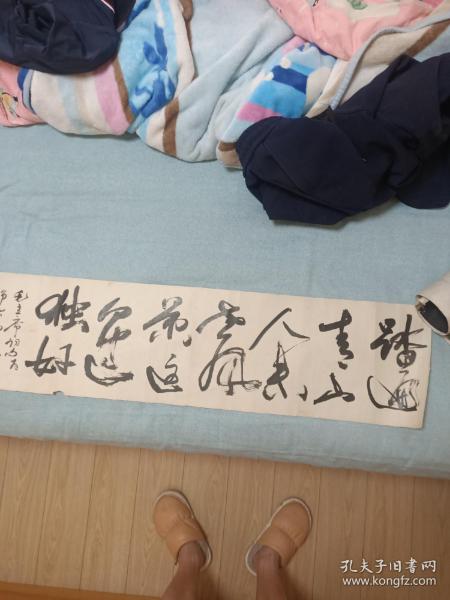 踏遍
青山
人未
老风
景这
边
独好
毛主席
孔夫子旧书网
www.kongfz.com